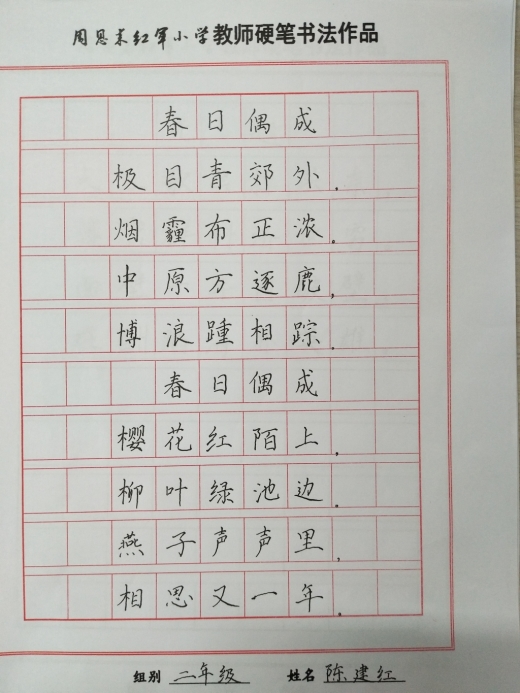 周恩来红军小学教师硬笔书法作品
春日偶成
极目青郊外，
烟霾布正浓。
中原方逐鹿，
博浪踵相踪。
春日偶成
樱花红陌上，
柳叶绿池边。
燕子声声里，
相思又一年。
组别 二年级 姓名 陈建红